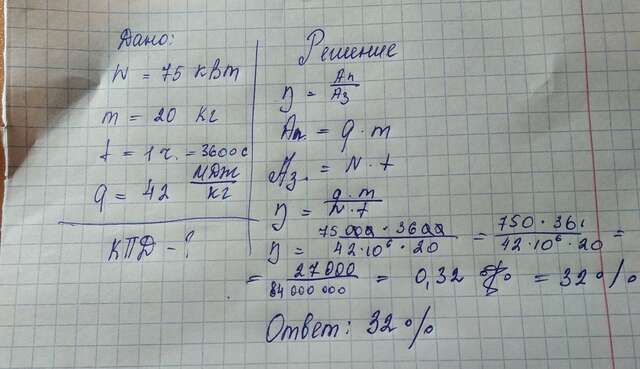 Дано:
N = 75 кВт
m = 20 кг
t = 1 ч. = 3600 с
q = 42 МДж/кг
КПД - ?
Решение
η = Aп/Aз
Aп = q · m
Aз. = N · t
η = q · m / N · t
η = 75 000 · 3600 / 42 · 10⁶ · 20 = 750 · 36 / 42 · 10⁶ · 20 =
= 27000 / 84 000 000 = 0,32 = 32 %
Ответ: 32 %